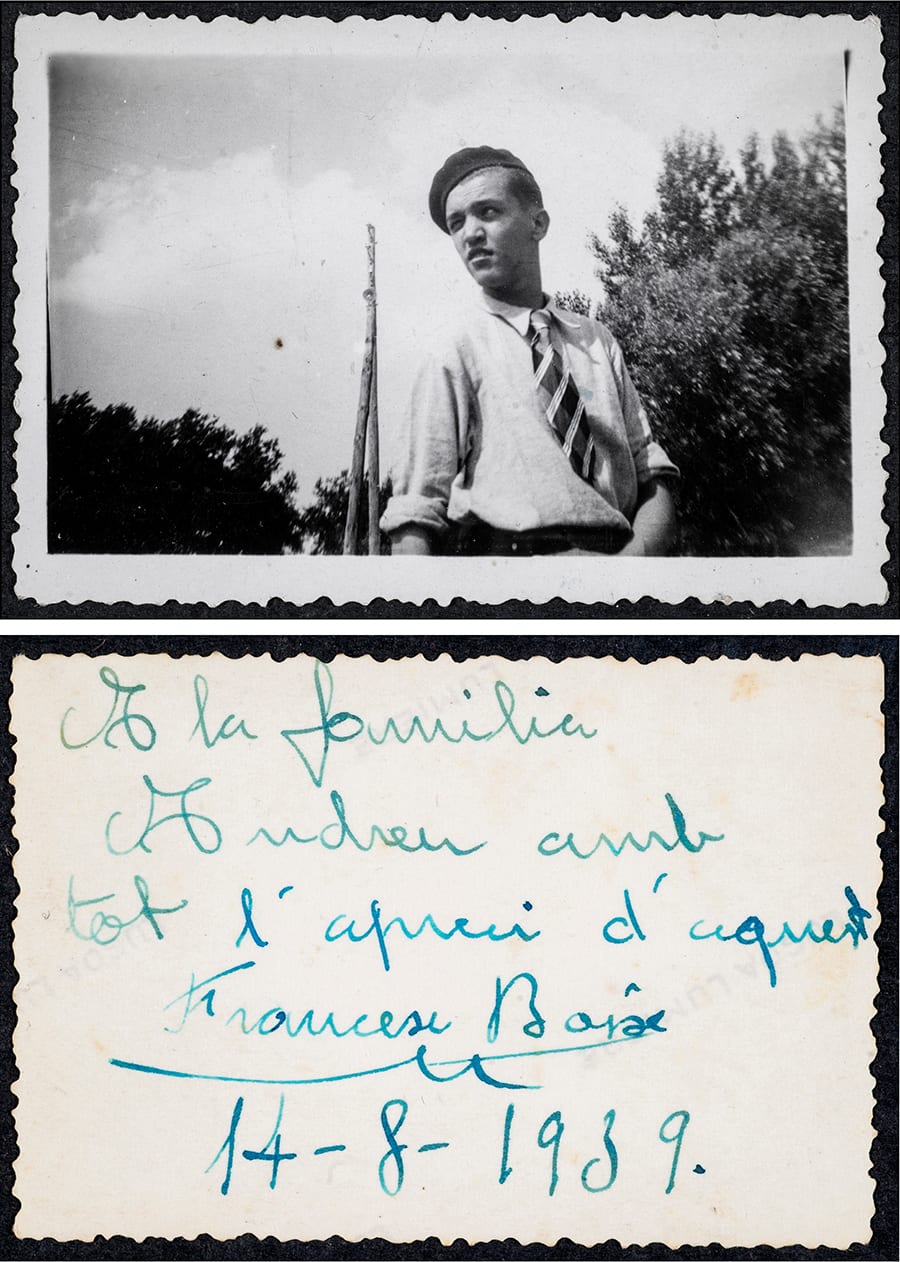 A la familia
Andreu amb
tot l'apreci d'aquest
Francesc Boix
14-8-1939.